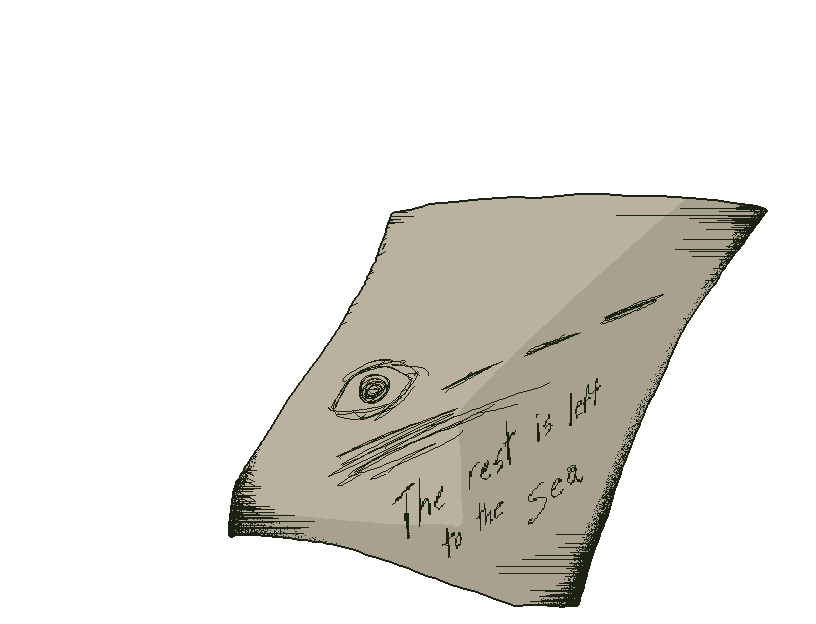 The rest is left
to the Sea